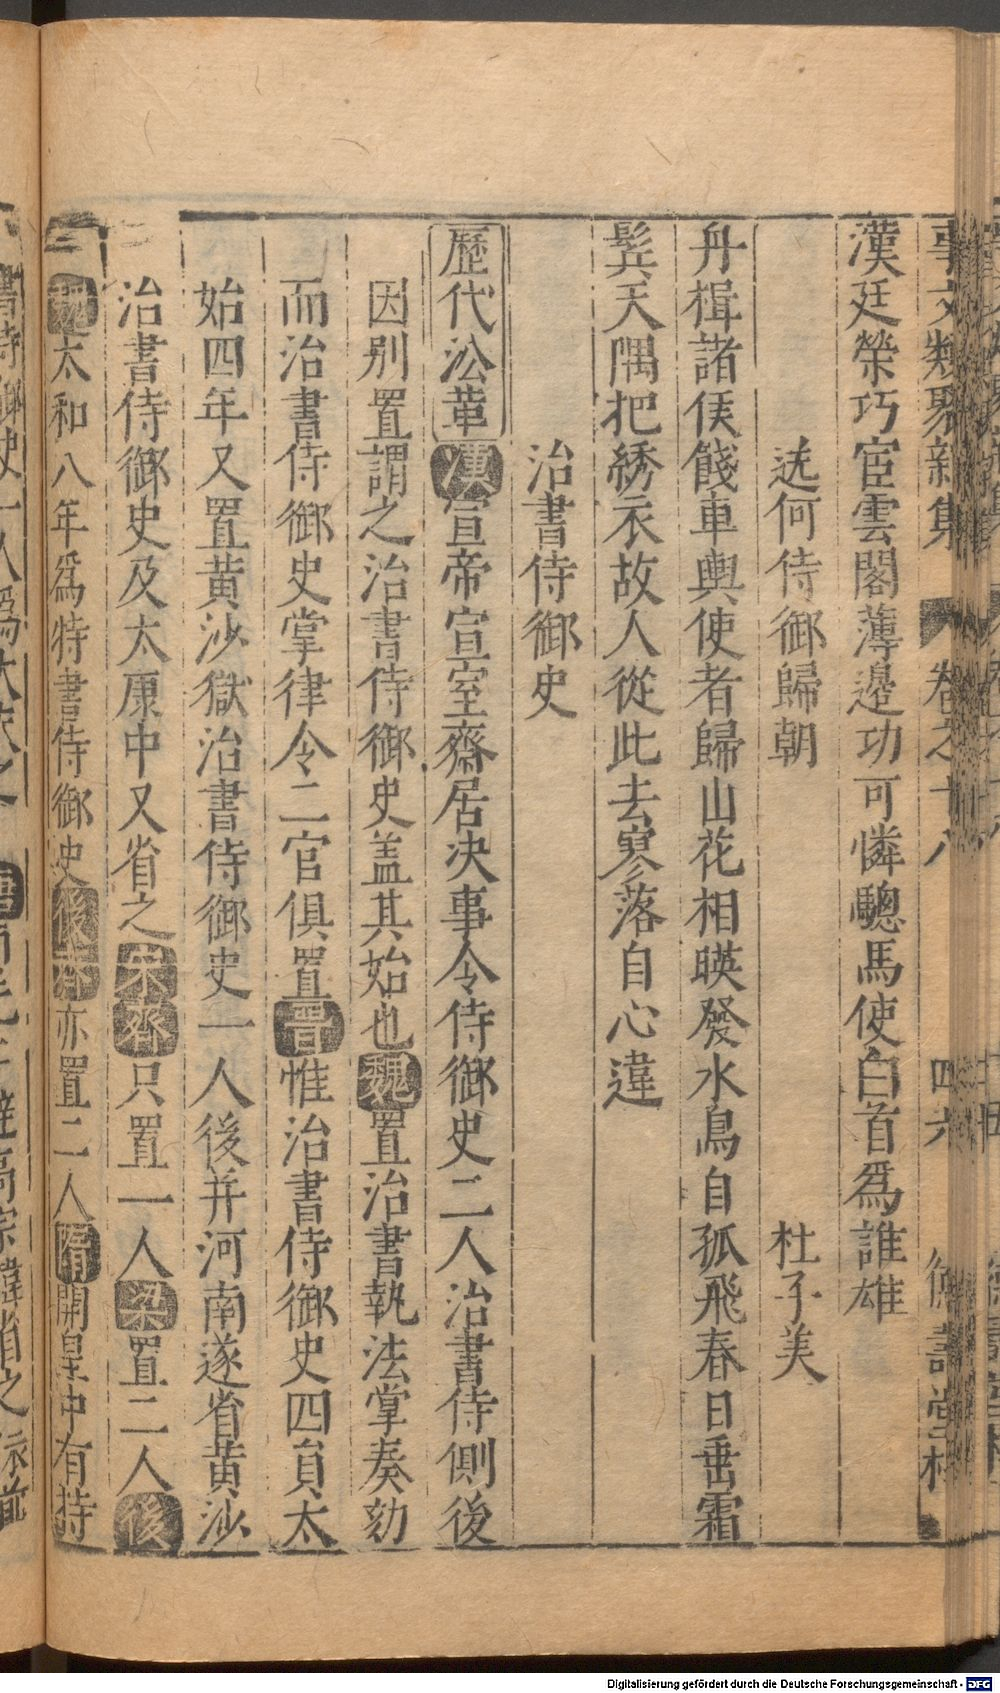 事文類聚新集 卷之十八 四六 德壽堂梓
漢廷榮巧宦雲閣薄邊功可憐驄馬使白首爲誰雄
送何侍御歸朝 杜子美
舟楫諸侯餞車輿使者歸山花相暎發水鳥自孤飛春日垂霜
鬂天隅把綉衣故人從此去寥落自心違
治書侍御史
歷代沿革漢宣帝宣室齋居決事令侍御史二人治書侍側後
因别置謂之治書侍御史盖其始也魏置治書執法掌奏劾
而治書侍御史掌律令二官俱置晋惟治書侍御史四員太
始四年又置黄沙獄治書侍御史一人後并河南遂省黄沙
治書侍御史及太康中又省之宋齊只置一人梁置二人後
魏太和八年爲特書侍御史後齊亦置二人隋開皇中有持
Digitalisierung gefördert durch die Deutsche Forschungsgemeinschaft - DFG